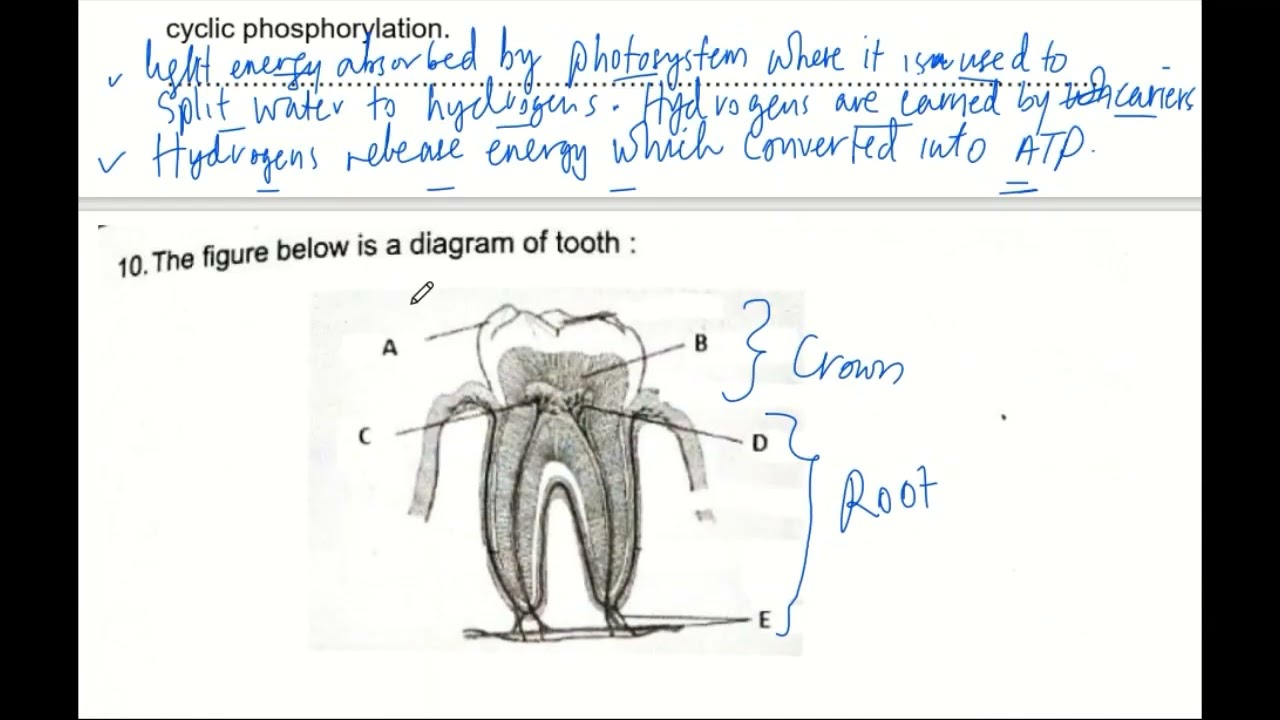 cyclic phosphorylation.
✓ light energy absorbed by photosystem where it is used to
split water to hydrogens. Hydrogens are carried by carriers
✓ Hydrogens release energy which converted into ATP.
10. The figure below is a diagram of tooth :
A
B
Crown
C
D
Root
E